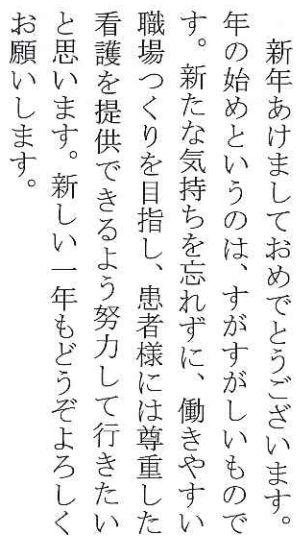 新年あけましておめでとうございます。
年の始めというのは、すがすがしいもので
す。新たな気持ちを忘れずに、働きやすい
職場つくりを目指し、患者様には尊重した
看護を提供できるよう努力して行きたい
と思います。新しい一年もどうぞよろしく
お願いします。